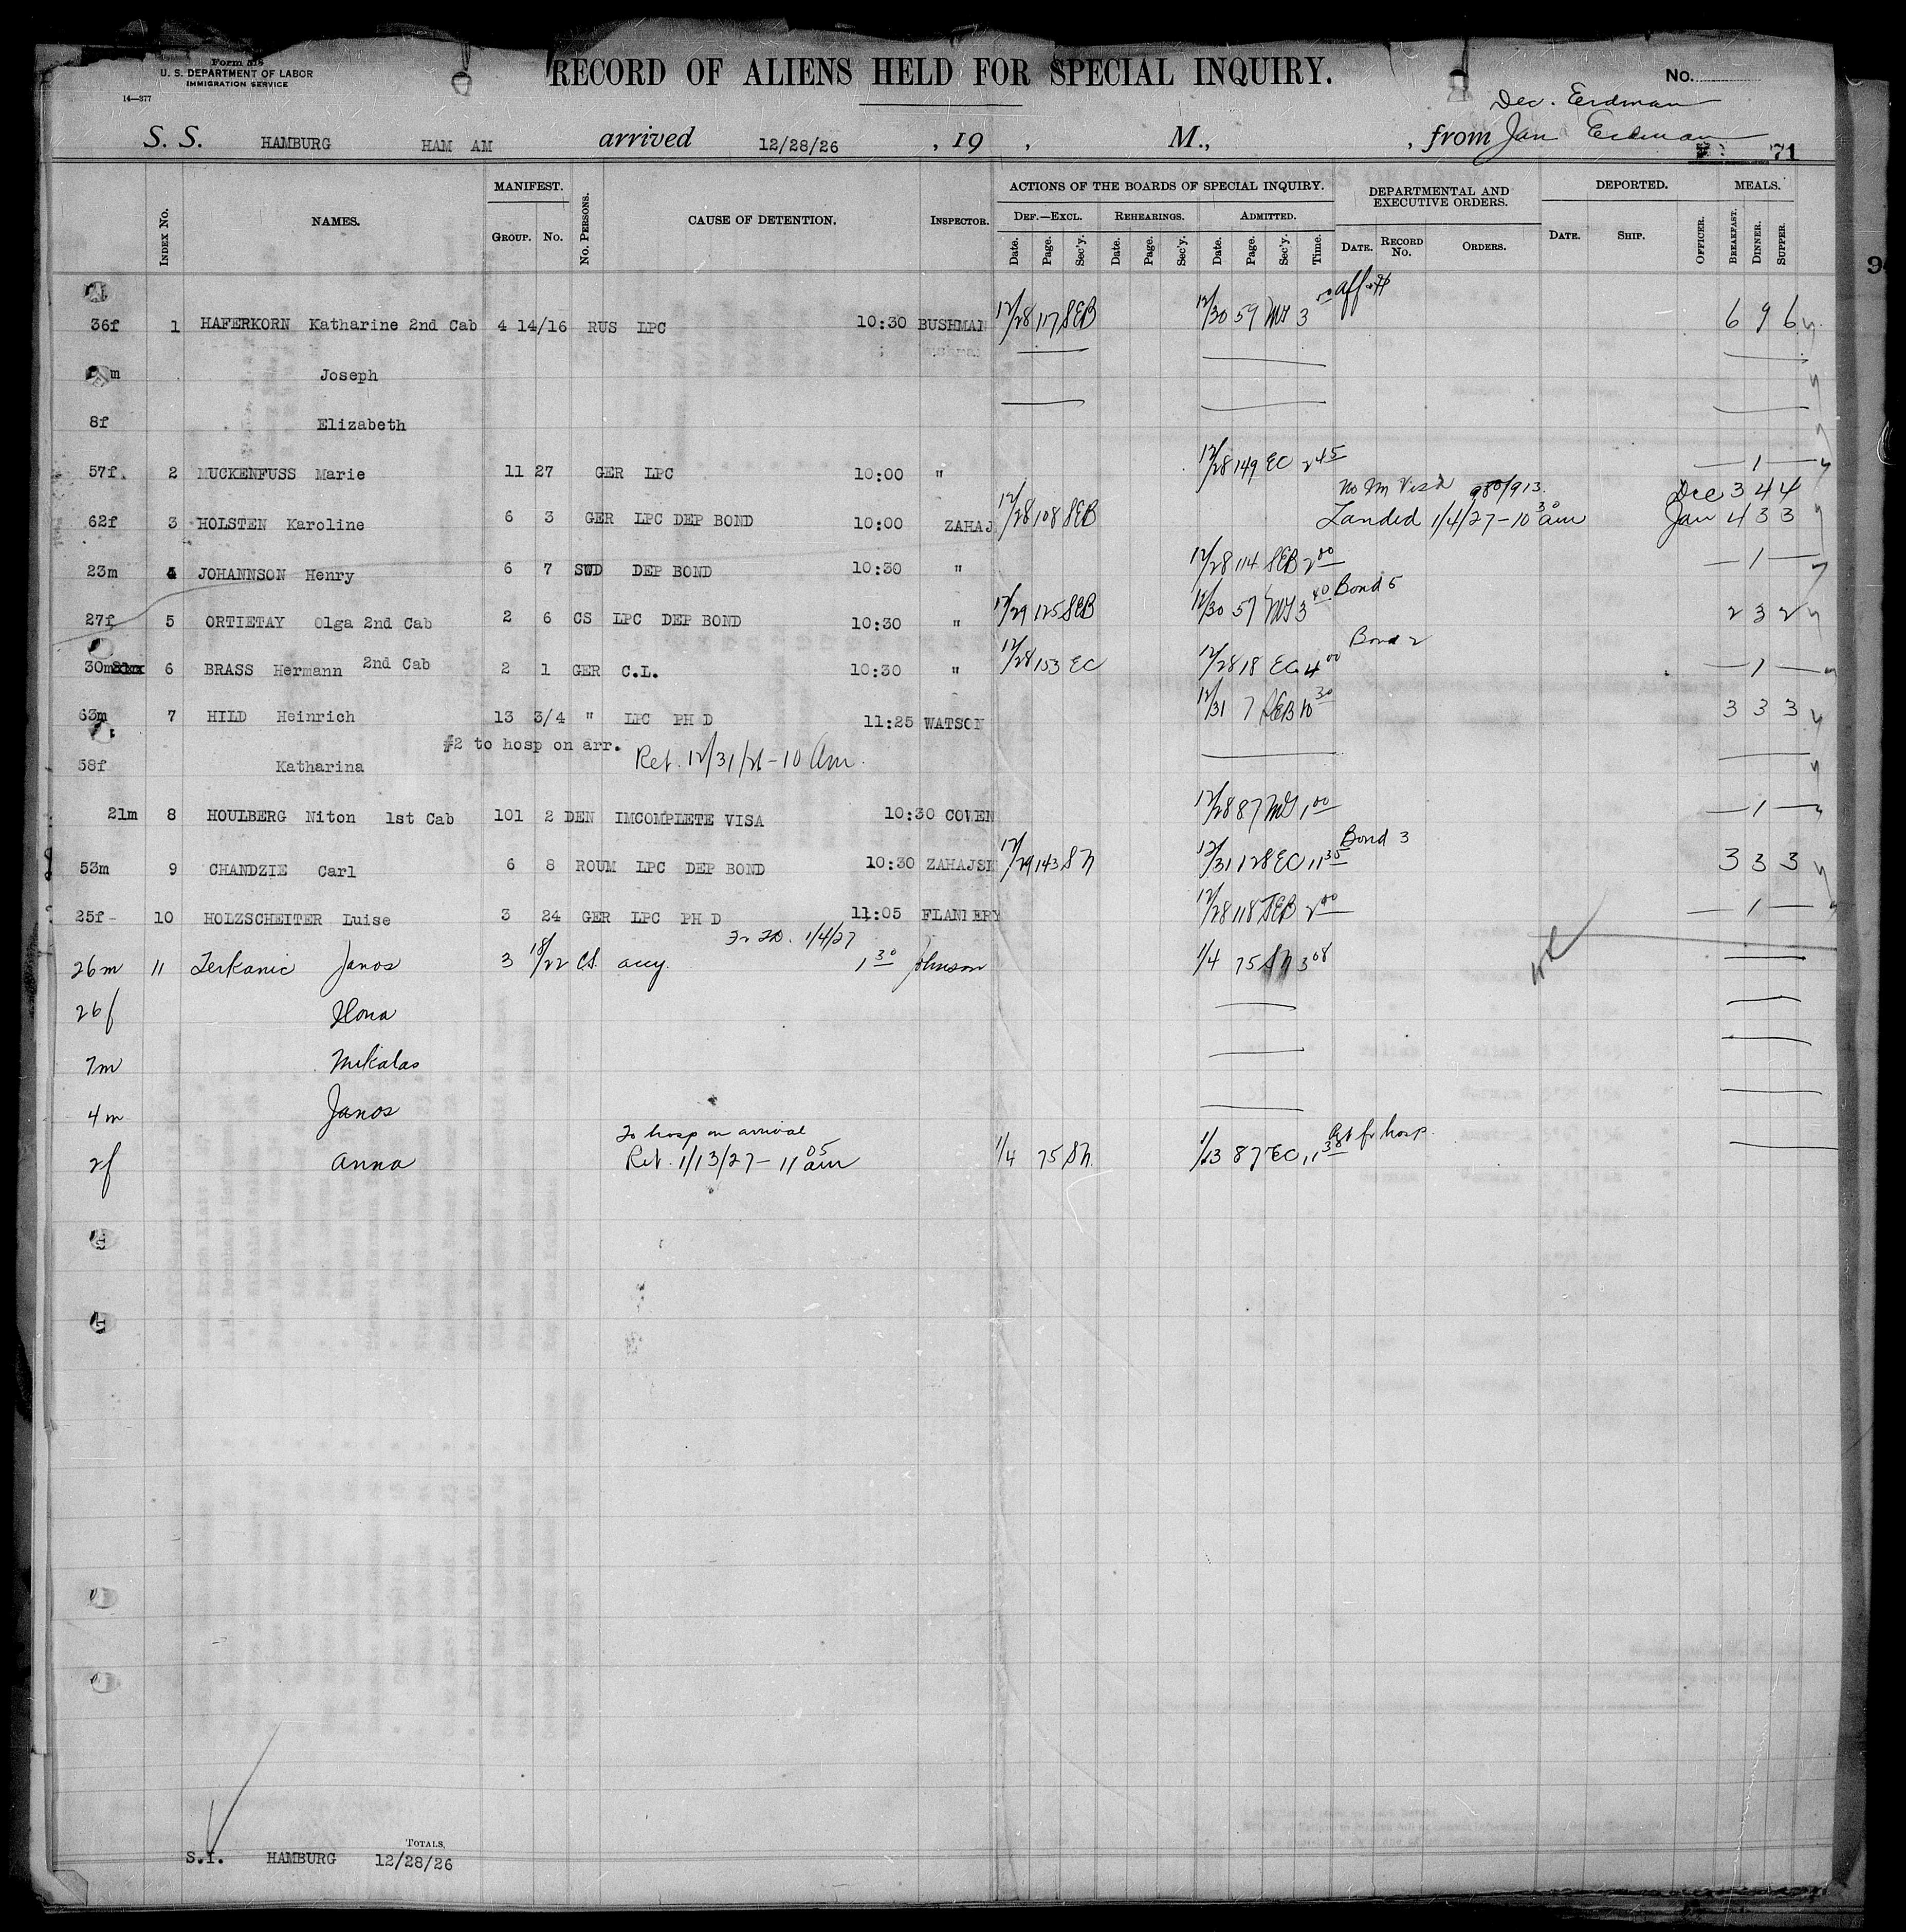 Form 518
U. S. DEPARTMENT OF LABOR
IMMIGRATION SERVICE
14—377
RECORD OF ALIENS HELD FOR SPECIAL INQUIRY.
No.
Dec. Erdman
S. S. HAMBURG HAM AM arrived 12/28/26 , 19 , M., , from Jan Erdman
71
INDEX No. NAMES. MANIFEST. GROUP. No. No. PERSONS. CAUSE OF DETENTION. INSPECTOR. ACTIONS OF THE BOARDS OF SPECIAL INQUIRY. DEPARTMENTAL AND EXECUTIVE ORDERS. DEPORTED. MEALS.
DEF.—EXCL. REHEARINGS. ADMITTED.
Date. Page. Sec'y. Date. Page. Sec'y. Date. Page. Sec'y. Time. DATE. RECORD No. ORDERS. DATE. SHIP. OFFICER. BREAKFAST. DINNER. SUPPER.
9
36f 1 HAFERKORN Katharine 2nd Cab 4 14/16 RUS LPC 10:30 BUSHMAN 12/28 117 SEB 12/30 59 MG 3 00 6 9 6
m Joseph
8f Elizabeth
57f. 2 MUCKENFUSS Marie 11 27 GER LPC 10:00 " 12/28 149 EC 2 45 — 1 —
62f 3 HOLSTEN Karoline 6 3 GER LPC DEP BOND 10:00 ZAHAJ 12/28 108 SEB Dec 3 4 4
Landed 1/4/27 - 10 30 am Jan 4 3 3
23m 4 JOHANNSON Henry 6 7 SWD DEP BOND 10:30 " 12/28 114 SEB 2 00 — 1 —
27f 5 ORTIETAY Olga 2nd Cab 2 6 CS LPC DEP BOND 10:30 " 12/29 125 SEB 12/30 57 MG 3 40 Bond 5 2 3 2
30m 6 BRASS Hermann 2nd Cab 2 1 GER C.L. 10:30 " 12/28 153 EC 12/28 18 EC 4 00 Bond 2 — 1 —
63m 7 HILD Heinrich 13 3/4 " LPC PH D 11:25 WATSON 12/31 7 SEB 10 30 3 3 3
#2 to hosp on arr. Ret. 12/31/26 - 10 Am.
58f Katharina
21m 8 HOULBERG Niton 1st Cab 101 2 DEN IMCOMPLETE VISA 10:30 COVEN 12/28 87 MG 1 00 — 1 —
53m 9 CHANDZIE Carl 6 8 ROUM LPC DEP BOND 10:30 ZAHAJSK 12/29 143 SN 12/31 128 EC 11 35 Bond 3 3 3 3
25f- 10 HOLZSCHEITER Luise 3 24 GER LPC PH D 11:05 FLANIERY 12/28 118 SEB 2 00 — 1 —
1/4/27
26m 11 Terkanic Janos 3 18/22 CS. accy. 1 30 Johnson 1/4 75 SN 3 08
26f Ilona
7m Mikalas
4m Janos
To hosp on arrival
2f Anna Ret. 1/13/27 - 11 05 am 1/4 75 SN. 1/13 87 EC 11 38 hosp.
TOTALS,
S.I. HAMBURG 12/28/26